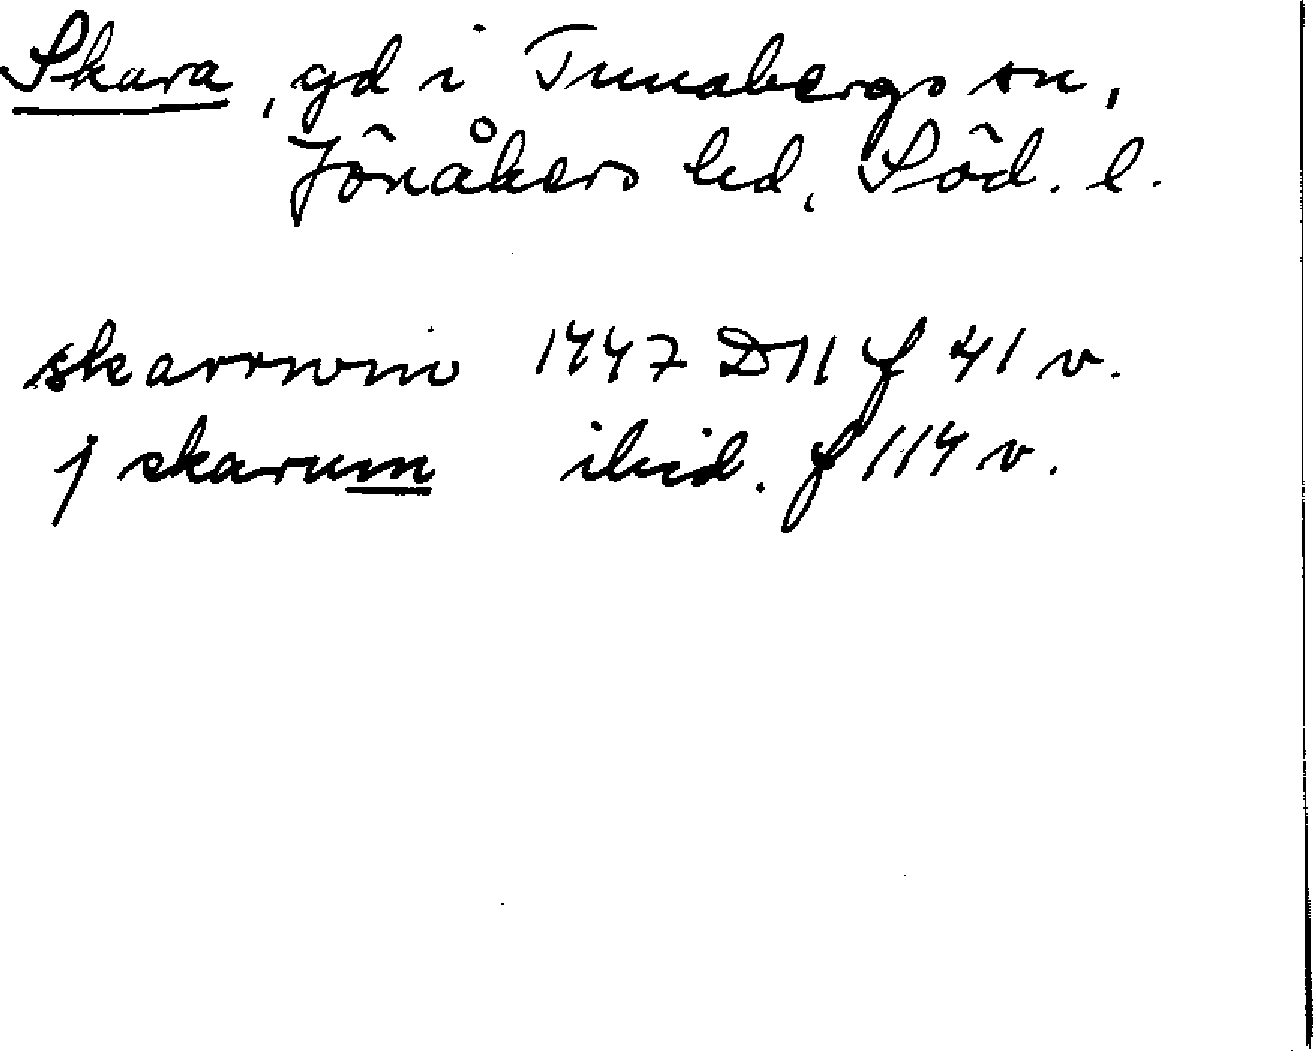 Skara, gd i Tunabergs sn,
Jönåkers hd, Söd. l.
skarrwm 1447 D11 f 41 v.
j skarum ibid. f 114 v.